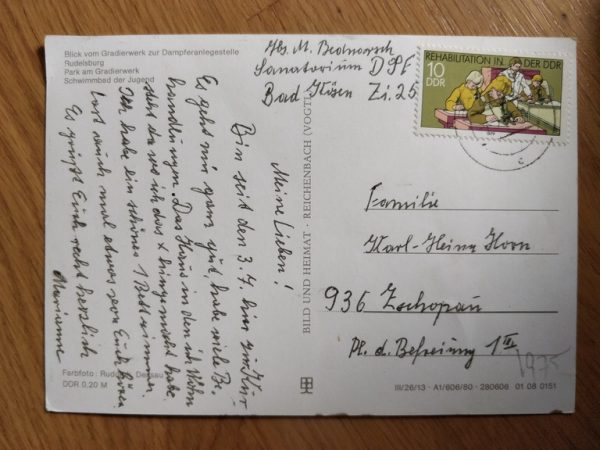 Blick vom Gradierwerk zur Dampferanlegestelle
Rudelsburg
Park am Gradierwerk
Schwimmbad der Jugend
Abs. M. Bednorsch
Sanatorium DSF
Bad Kösen Zi. 25
REHABILITATION IN DER DDR
10
DDR
Meine Lieben!
Bin seit den 3.4. hier zur Kur
Es geht mir ganz gut, habe viele Be-
handlungen. Das Haus in den ich Wohn
steht da wo ich das x hingemacht habe.
Ich habe ein schönes 1 Bettzimmer.
Last auch mal etwas von Euch hören
Es grüßt Euch recht herzlich
Marianne
BILD UND HEIMAT · REICHENBACH (VOGTL
Familie
Karl-Heinz Horn
936 Zschopau
Pl. d. Befreiung 1 III
1975
Farbfoto: Dessau
DDR 0,20 M
III/26/13 · A1/606/80 · 280606 01 08 0151